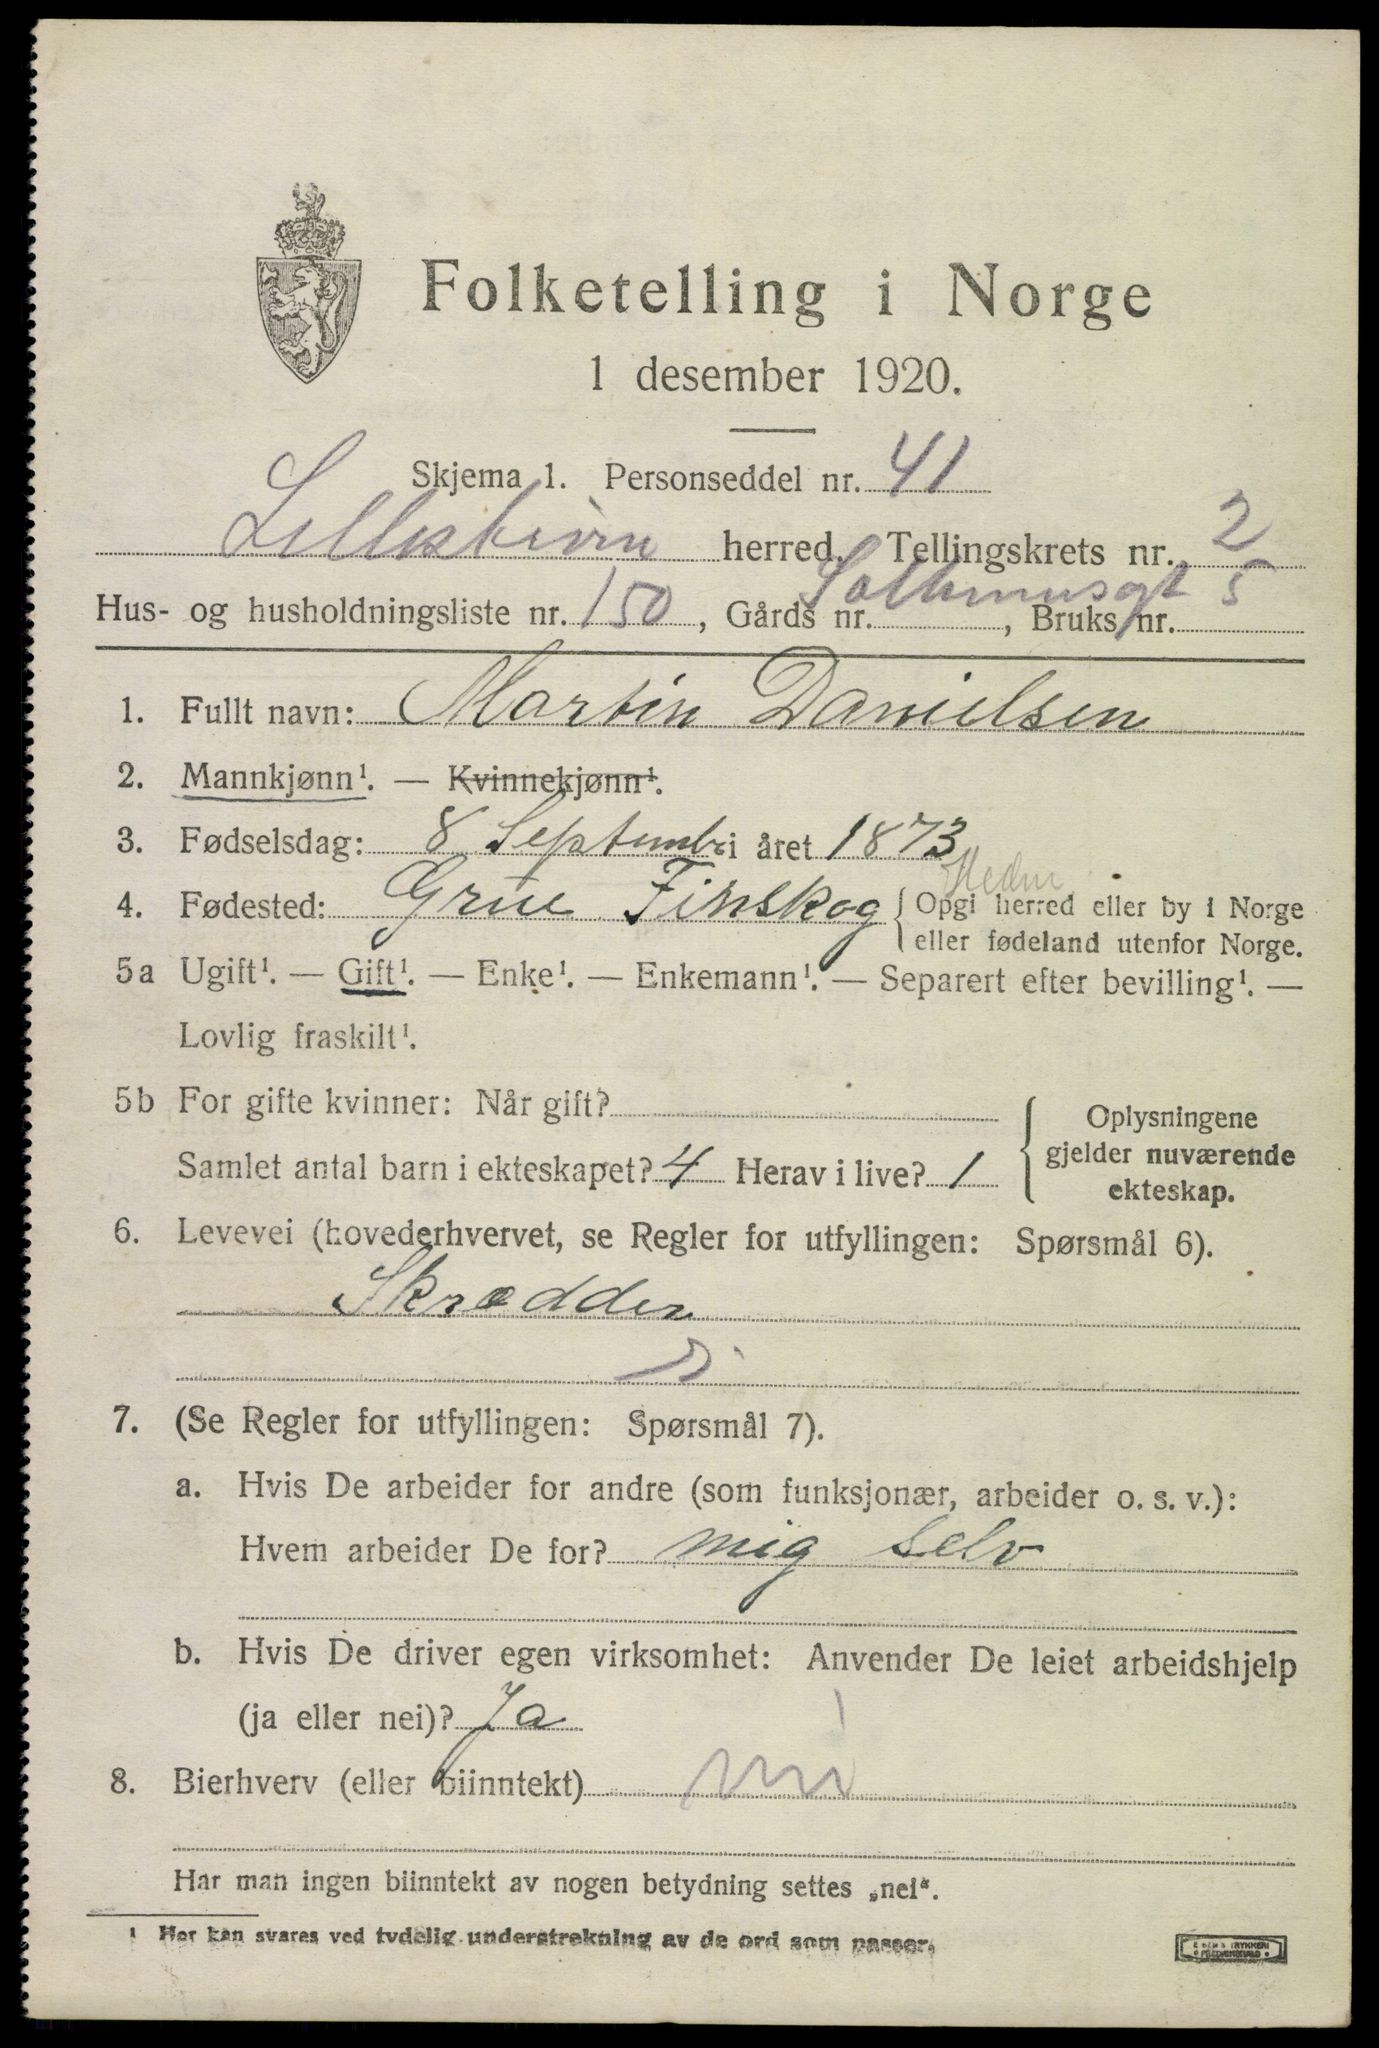 Folketelling i Norge
1 desember 1920.
Skjema 1. Personseddel nr. 41
Lillestrøm herred. Tellingskrets nr. 2
Hus- og husholdningsliste nr. 150, Gårds nr. , Bruks nr. 5
1. Fullt navn: Martin Danielsen
2. Mannkjønn¹. — Kvinnekjønn¹.
3. Fødselsdag: 8 Septembr i året 1873
Hedm
4. Fødested: Grue Finskog { Opgi herred eller by i Norge
eller fødeland utenfor Norge.
5a Ugift¹. — Gift¹. — Enke¹. — Enkemann¹. — Separert efter bevilling¹. —
Lovlig fraskilt¹.
5b For gifte kvinner: Når gift?
Samlet antal barn i ekteskapet? 4 Herav i live? 1
{ Oplysningene
gjelder nuværende
ekteskap.
6. Levevei (hovederhvervet, se Regler for utfyllingen: Spørsmål 6).
Skrædder
7. (Se Regler for utfyllingen: Spørsmål 7).
a. Hvis De arbeider for andre (som funksjonær, arbeider o. s. v.):
Hvem arbeider De for? mig selv
b. Hvis De driver egen virksomhet: Anvender De leiet arbeidshjelp
(ja eller nei)? Ja
8. Bierhverv (eller biinntekt) nei
Har man ingen biinntekt av nogen betydning settes „nei“.
¹ Her kan svares ved tydelig understrekning av de ord som passer.